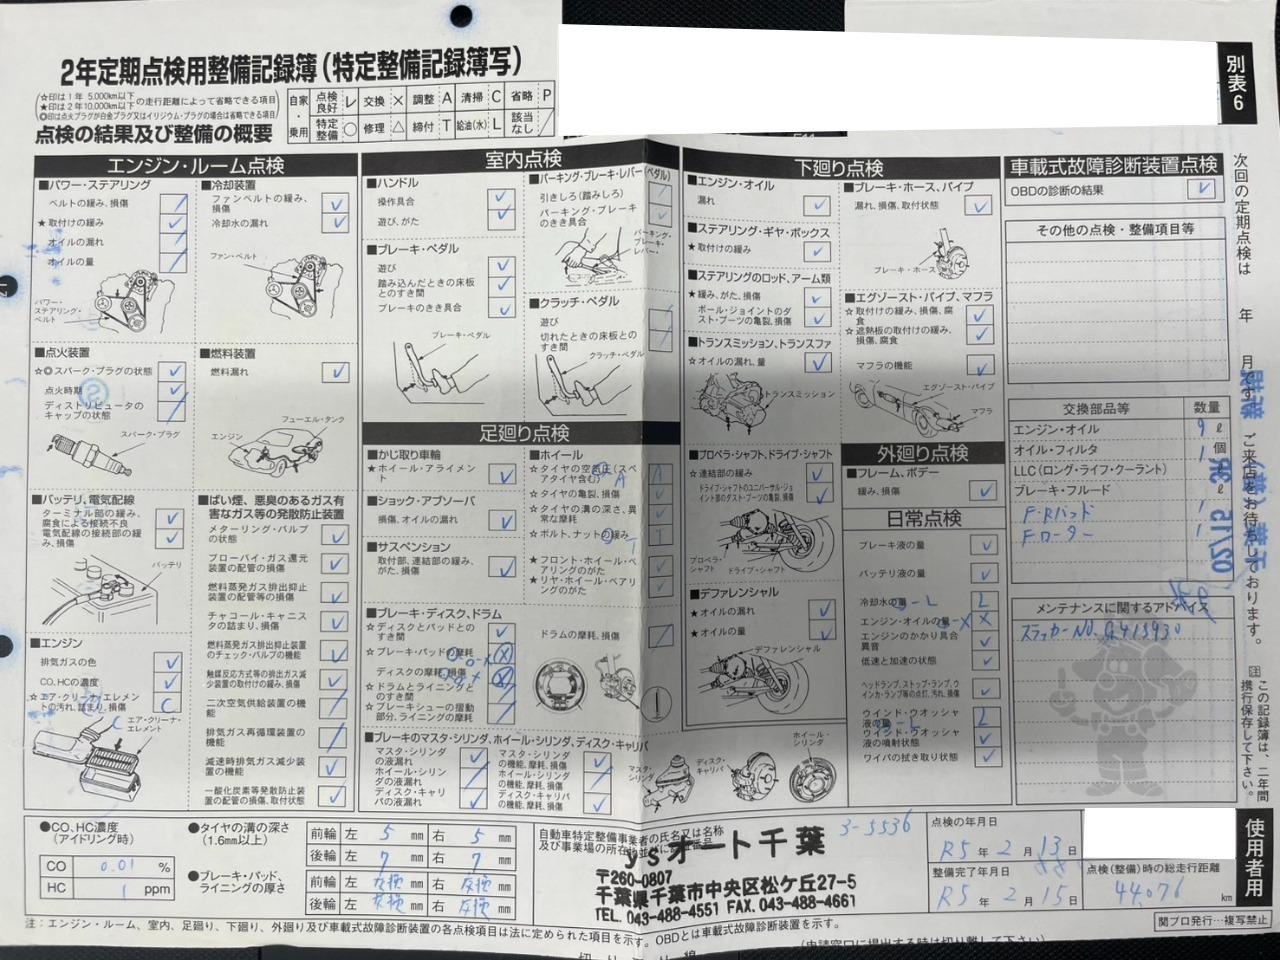 2年定期点検用整備記録簿(特定整備記録簿写)
別表6
☆印は1年 5,000km以下
★印は2年10,000km以下
の走行距離によって省略できる項目
◎印は点火プラグが白金プラグ又はイリジウム・プラグの場合は省略できる項目
点検の結果及び整備の概要
自家・乗用
点検良好 レ 交換 × 調整 A 清掃 C 省略 P
特定整備 ○ 修理 △ 締付 T 給油(水) L 該当なし /
エンジン・ルーム点検
■パワー・ステアリング
ベルトの緩み、損傷
★取付けの緩み
オイルの漏れ
オイルの量
パワー・ステアリング・ベルト
■冷却装置
ファンベルトの緩み、損傷
冷却水の漏れ
ファン・ベルト
■点火装置
☆◎スパーク・プラグの状態
点火時期
ディストリビュータのキャップの状態
スパーク・プラグ
■燃料装置
燃料漏れ
フューエル・タンク
エンジン
■バッテリ、電気配線
ターミナル部の緩み、腐食による接続不良
電気配線の接続部の緩み、損傷
バッテリ
■エンジン
排気ガスの色
CO、HCの濃度
☆エア・クリーナ・エレメントの汚れ、詰まり、損傷
エア・クリーナ・エレメント
■ばい煙、悪臭のあるガス有害なガス等の発散防止装置
メターリング・バルブの状態
ブローバイ・ガス還元装置の配管の損傷
燃料蒸発ガス排出抑止装置の配管等の損傷
チャコール・キャニスタの詰まり、損傷
燃料蒸発ガス排出抑止装置のチェック・バルブの機能
触媒反応方式等の排出ガス減少装置の取付けの緩み、損傷
二次空気供給装置の機能
排気ガス再循環装置の機能
減速時排気ガス減少装置の機能
一酸化炭素等発散防止装置の配管の損傷、取付状態
室内点検
■ハンドル
操作具合
遊び、がた
■ブレーキ・ペダル
遊び
踏み込んだときの床板とのすき間
ブレーキのきき具合
ブレーキ・ペダル
■パーキング・ブレーキ・レバー(ペダル)
引きしろ(踏みしろ)
パーキング・ブレーキのきき具合
パーキング・ブレーキ・レバー
■クラッチ・ペダル
遊び
切れたときの床板とのすき間
クラッチ・ペダル
足廻り点検
■かじ取り車輪
★ホイール・アライメント
■ショック・アブソーバ
損傷、オイルの漏れ
■サスペンション
取付部、連結部の緩み、がた、損傷
■ブレーキ・ディスク、ドラム
☆ディスクとパッドとのすき間
☆ブレーキ・パッドの摩耗
ディスクの摩耗、損傷
☆ドラムとライニングとのすき間
☆ブレーキシューの摺動部分、ライニングの摩耗
ドラムの摩耗、損傷
■ホイール
☆タイヤの空気圧(スペアタイヤ含む)
☆タイヤの亀裂、損傷
☆タイヤの溝の深さ、異常な摩耗
☆ボルト、ナットの緩み
★フロント・ホイール・ベアリングのがた
★リヤ・ホイール・ベアリングのがた
■ブレーキのマスタ・シリンダ、ホイール・シリンダ、ディスク・キャリパ
マスタ・シリンダの液漏れ
ホイール・シリンダの液漏れ
ディスク・キャリパの液漏れ
マスタ・シリンダの機能、摩耗、損傷
ホイール・シリンダの機能、摩耗、損傷
ディスク・キャリパの機能、摩耗、損傷
マスタ・シリンダ
ディスク・キャリパ
ホイール・シリンダ
下廻り点検
■エンジン・オイル
漏れ
■ステアリング・ギヤ・ボックス
★取付けの緩み
■ステアリングのロッド、アーム類
★緩み、がた、損傷
ボール・ジョイントのダスト・ブーツの亀裂、損傷
■トランスミッション、トランスファ
☆オイルの漏れ、量
トランスミッション
■プロペラ・シャフト、ドライブ・シャフト
☆連結部の緩み
ドライブ・シャフトのユニバーサル・ジョイント部のダスト・ブーツの亀裂、損傷
プロペラ・シャフト
ドライブ・シャフト
■デファレンシャル
★オイルの漏れ
★オイルの量
デファレンシャル
■ブレーキ・ホース、パイプ
漏れ、損傷、取付状態
ブレーキ・ホース
■エグゾースト・パイプ、マフラ
☆取付けの緩み、損傷、腐食
☆遮熱板の取付けの緩み、損傷、腐食
マフラの機能
エグゾースト・パイプ
マフラ
外廻り点検
■フレーム、ボデー
緩み、損傷
日常点検
ブレーキ液の量
バッテリ液の量
冷却水の量
エンジン・オイルの量
エンジンのかかり具合異音
低速と加速の状態
ヘッドランプ、ストップ・ランプ、ウインカ・ランプ等の点灯、汚れ、損傷
ウインド・ウオッシャ液の量
ウインド・ウオッシャ液の噴射状態
ワイパの拭き取り状態
車載式故障診断装置点検
OBDの診断の結果
その他の点検・整備項目等
交換部品等 数量
エンジン・オイル 9 ℓ
オイル・フィルタ 1 個
LLC(ロング・ライフ・クーラント) ℓ
ブレーキ・フルード ℓ
F・Rパッド 1
Fローター 1
メンテナンスに関するアドバイス
ステッカーNO. G413930
次回の定期点検は 年 月です。ご来店をお待ちしております。
注 この記録簿は、二年間携行保存して下さい。
使用者用
●CO、HC濃度(アイドリング時)
CO 0.01 %
HC 1 ppm
●タイヤの溝の深さ(1.6mm以上)
前輪 左 5 mm 右 5 mm
後輪 左 7 mm 右 7 mm
●ブレーキ・パッド、ライニングの厚さ
前輪 左 交換 mm 右 交換 mm
後輪 左 交換 mm 右 交換 mm
自動車特定整備事業者の氏名又は名称及び事業場の所在地並びに認証番号
3-5536
y'sオート千葉
〒260-0807
千葉県千葉市中央区松ケ丘27-5
TEL.043-488-4551 FAX.043-488-4661
点検の年月日
R5 年 2 月 13 日
整備完了年月日
R5 年 2 月 15 日
点検(整備)時の総走行距離
44,076 km
関プロ発行…複写禁止
注:エンジン・ルーム、室内、足廻り、下廻り、外廻り及び車載式故障診断装置の各点検項目は法に定められた項目を示す。OBDとは車載式故障診断装置を示す。